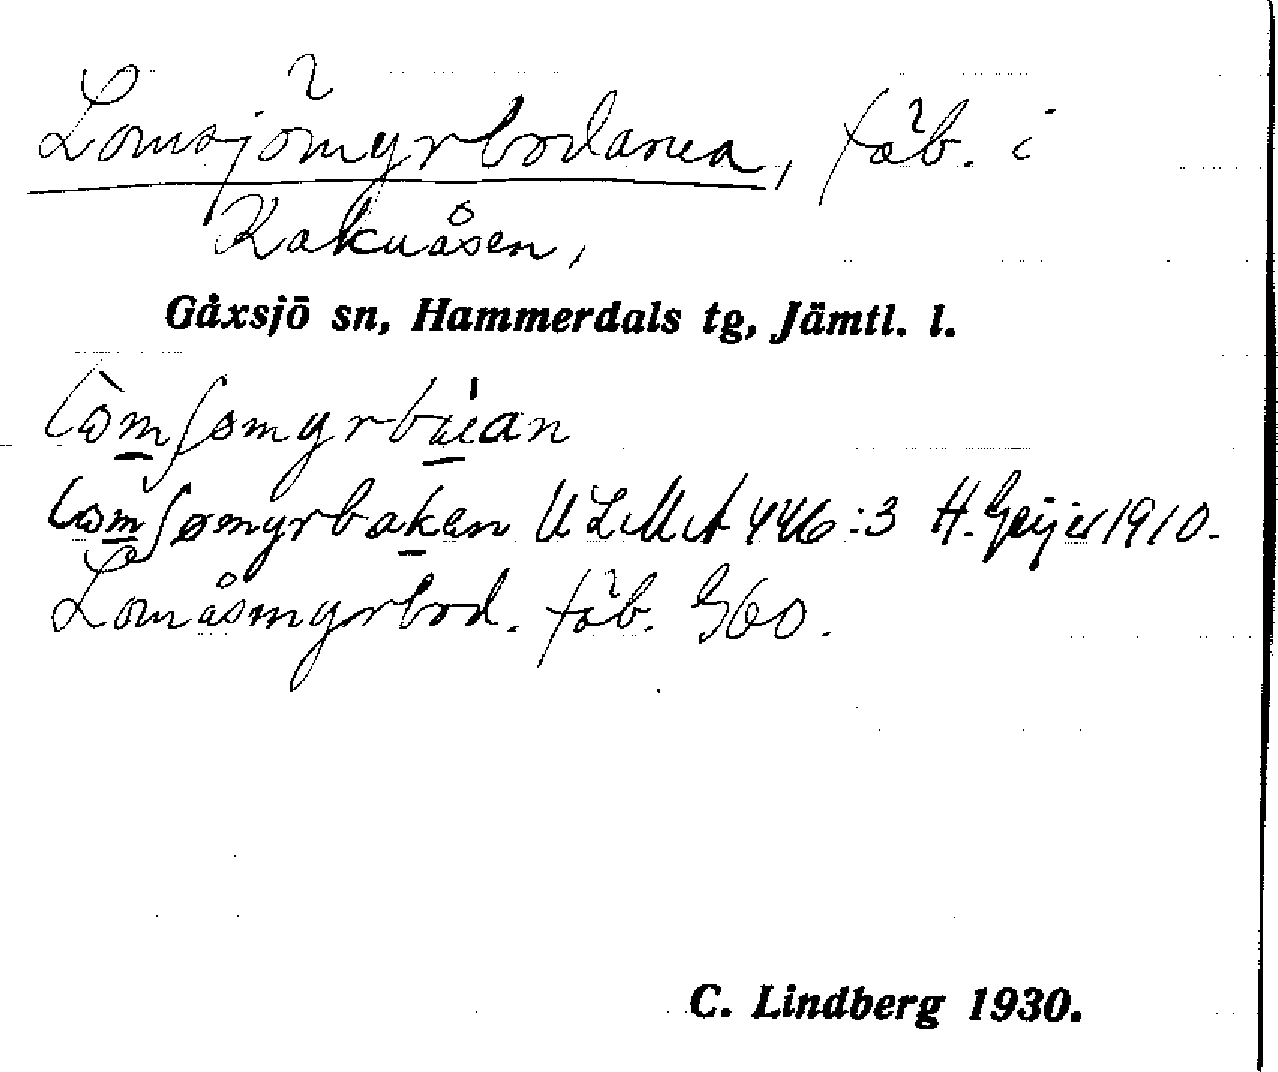 Lomsjömyrbodarna, fäb. i
Kakuåsen,
Gåxsjö sn, Hammerdals tg, Jämtl. l.
ULMA 446:3 H. Geijer 1910.
Lomåsmyrbod. fäb. G60.
C. Lindberg 1930.